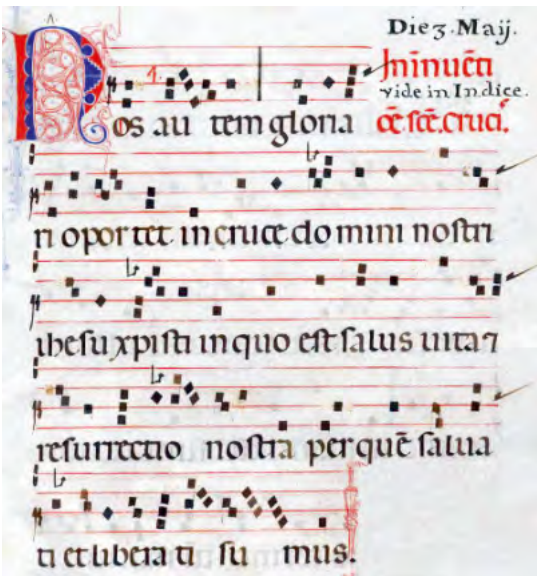 Die 3. Maij.
Jn inuẽti
vide in Indice.
Nos au tem gloria
õe sčẽ. cruci.
ri opor tet in cruce do mini nostri
ihesu xpisti in quo est salus uita ⁊
resurrectio nostra per quẽ salua
ti et libera ti su mus.